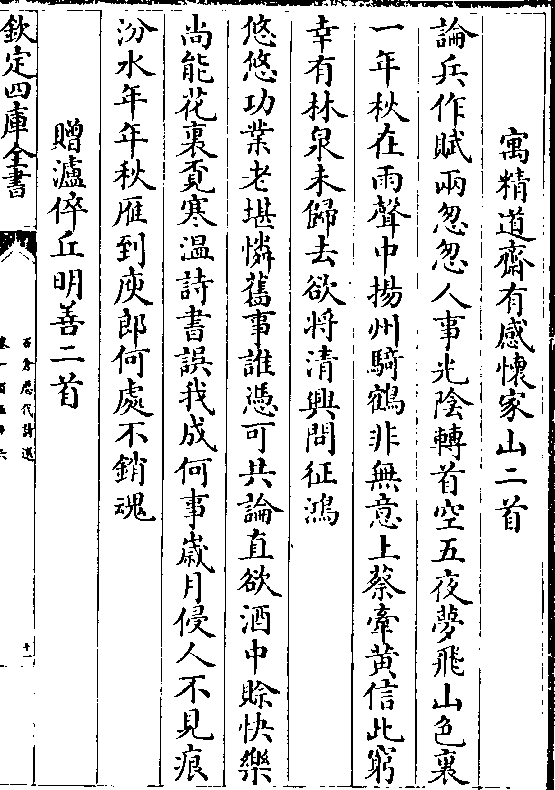 寓精道齋有感懷家山二首
論兵作賦兩怱怱人事光陰轉首空五夜夢飛山色裏
一年秋在雨聲中揚州騎鶴非無意上蔡牽黃信此窮
幸有林泉未歸去欲將清興問征鴻
悠悠功業老堪憐舊事誰憑可共論直欲酒中賒快樂
尚能花裏覓寒溫詩書誤我成何事嵗月侵人不見痕
汾水年年秋雁到庾郎何處不銷魂
贈瀘倅丘明善二首
欽定四庫全書
石倉歷代詩選
十一